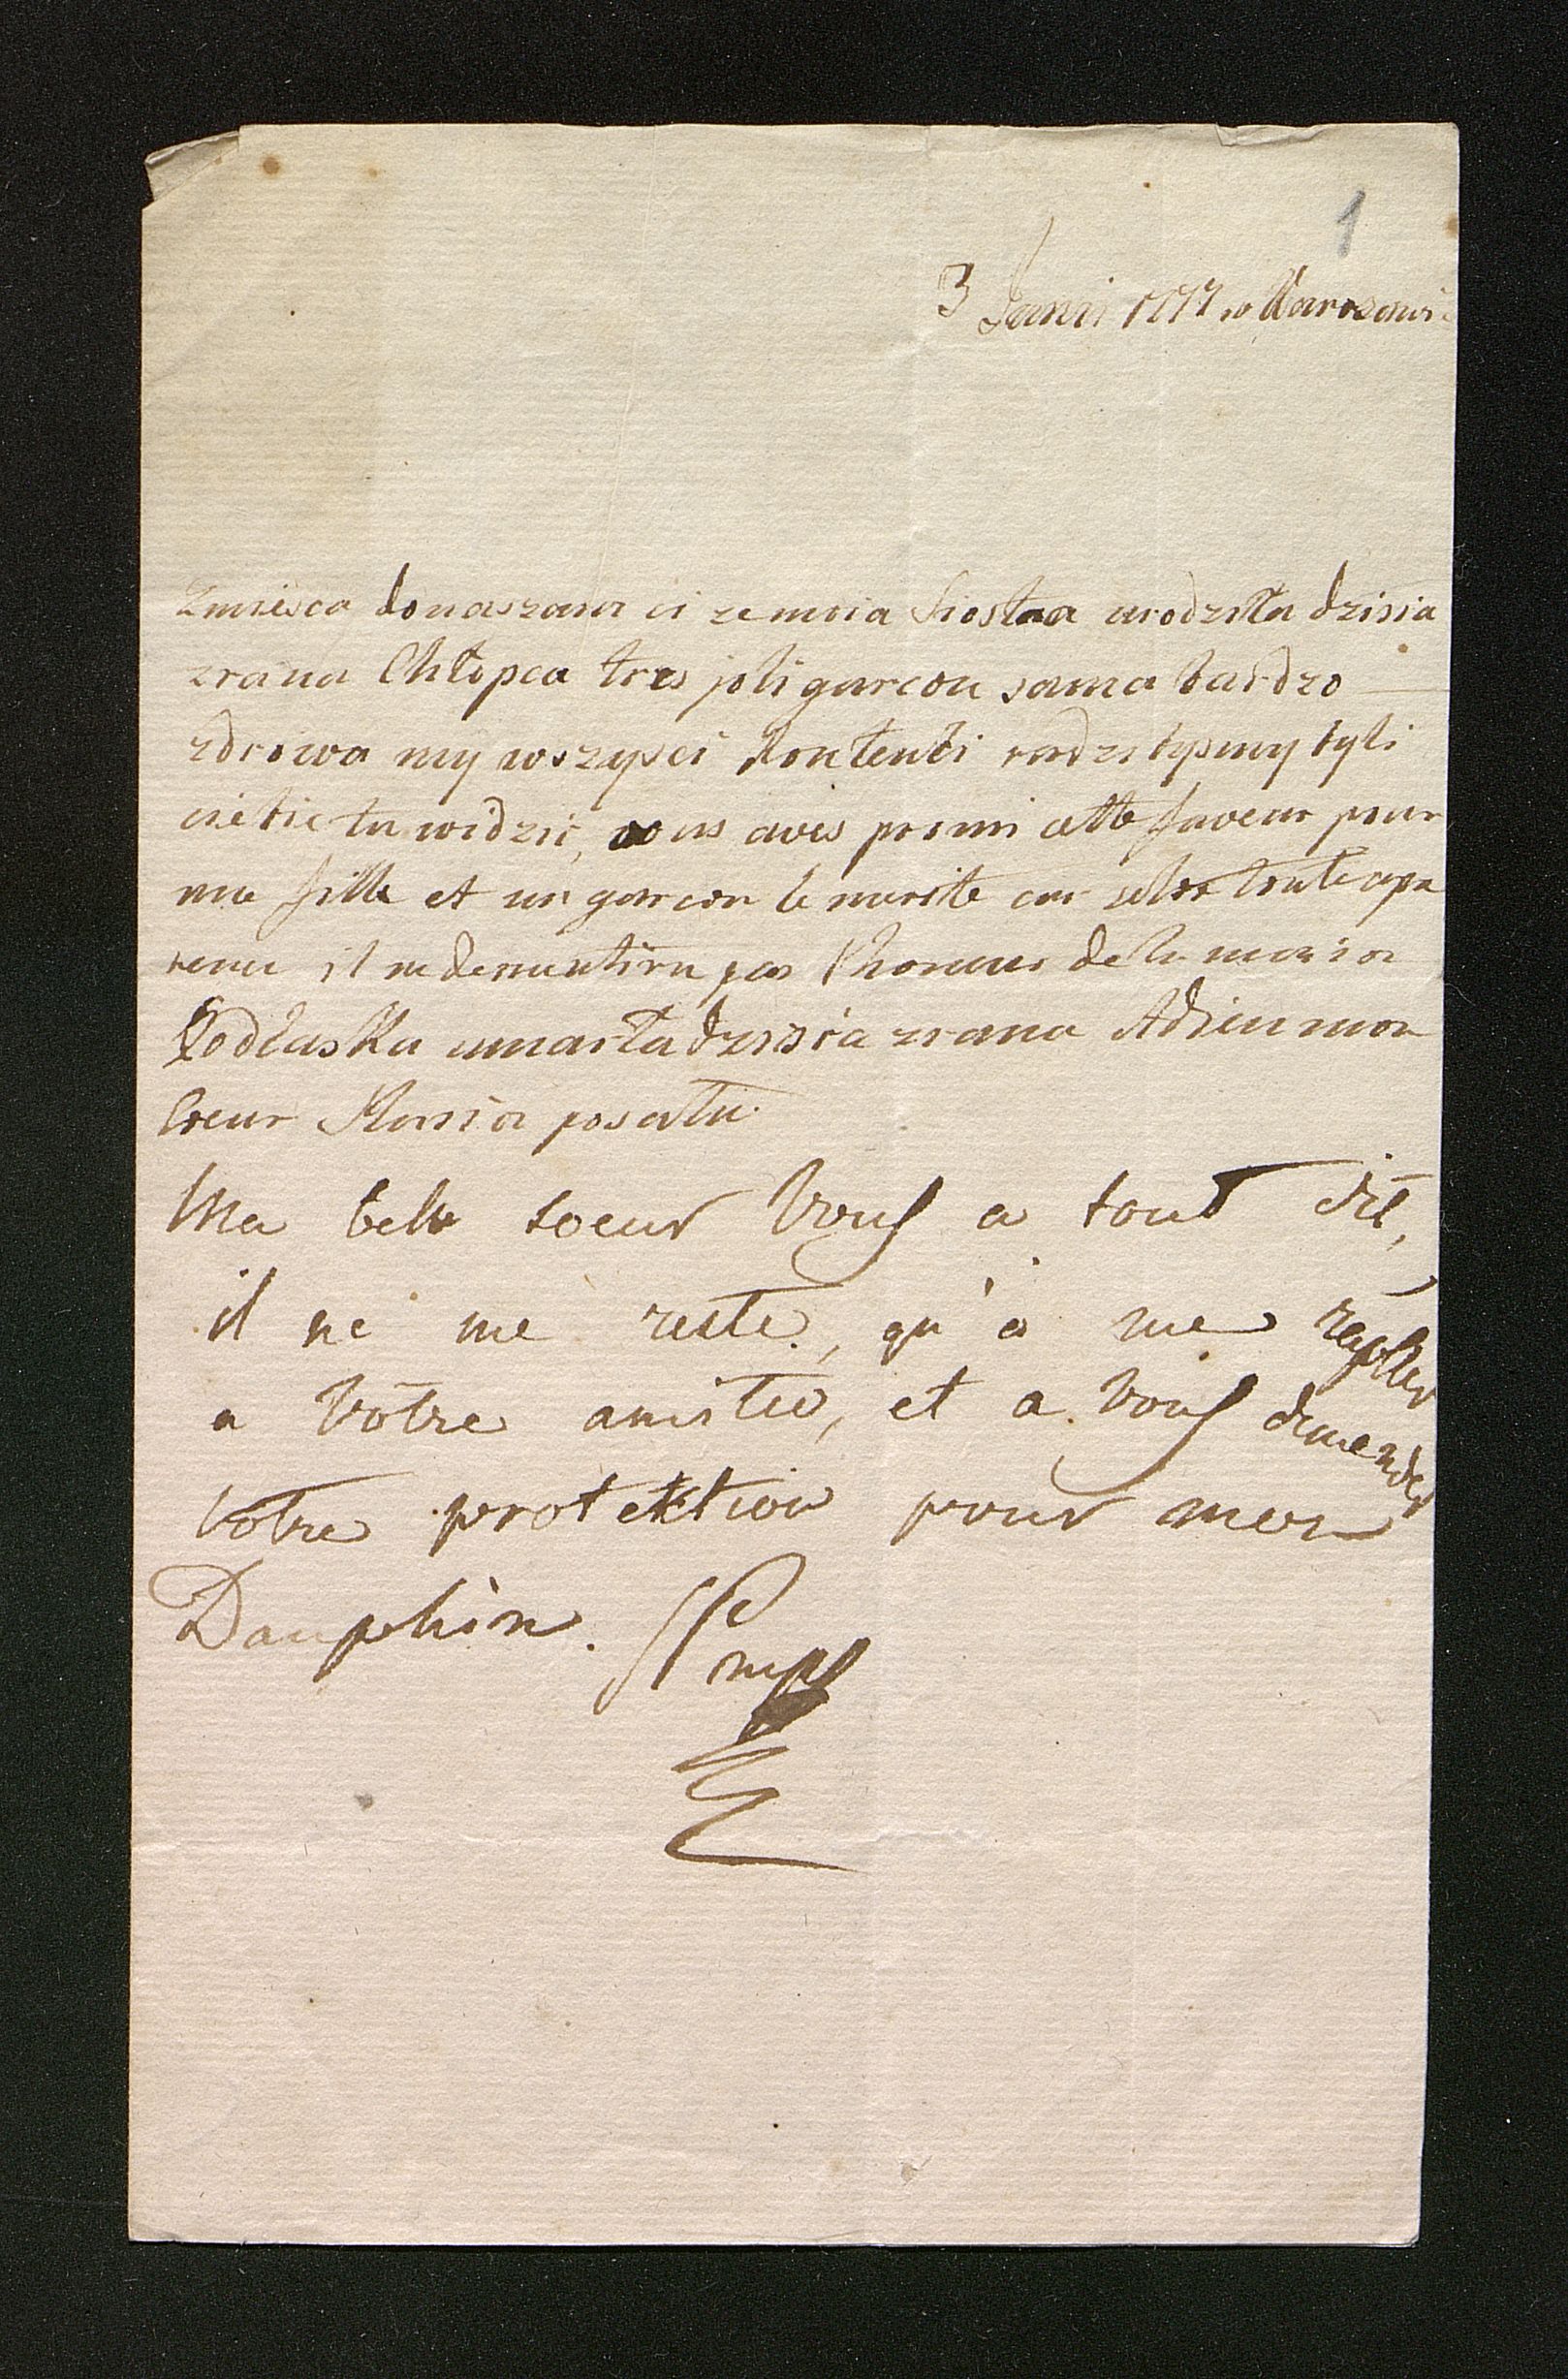 1
3 Janvi 1777 w Warszawi
Zmiesca donaszam ci ze moia Siostra urodziła dzisia
zrana Chłopca tres joli garcon sama bardzo
zdrowa my wszysci kontenti radzi bysmy byli
ciebie tu widzić, vous aves promi cette faveur pour
une fille et un garcon le merite car selon toute apa
rence il ne dementira pas l'honneur de la maison
Podlaska umarła dzisia zrana Adieu mon
Coeur
Ma belle soeur Vous a tout dit,
il ne me reste, qu'à me
a Vôtre amitié, et a Vous demender
Votre protektion pour mon
Dauphin.